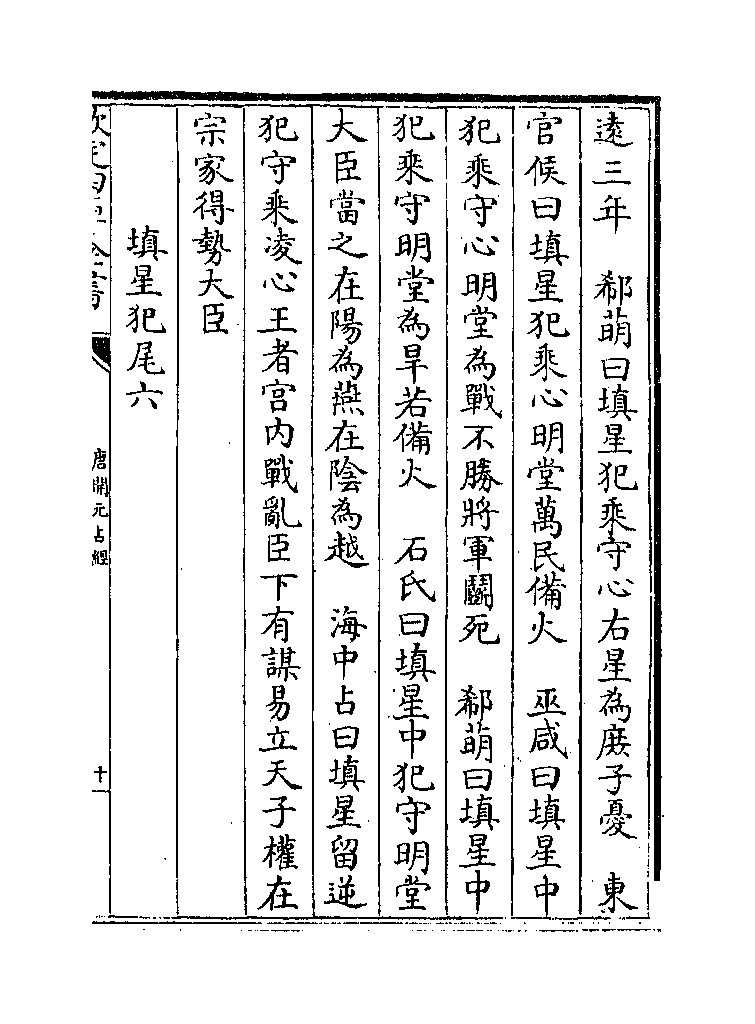 遠三年　郗萌曰填星犯乘守心右星為庶子憂　東
官候曰填星犯乘心明堂萬民備火　巫咸曰填星中
犯乘守心明堂為戰不勝將軍鬭死　郗萌曰填星中
犯乘守明堂為旱若備火　石氏曰填星中犯守明堂
大臣當之在陽為燕在陰為越　海中占曰填星留逆
犯守乘凌心王者宫内戰亂臣下有謀易立天子權在
宗家得勢大臣
填星犯尾六
欽定四庫全書
唐開元占經
十一